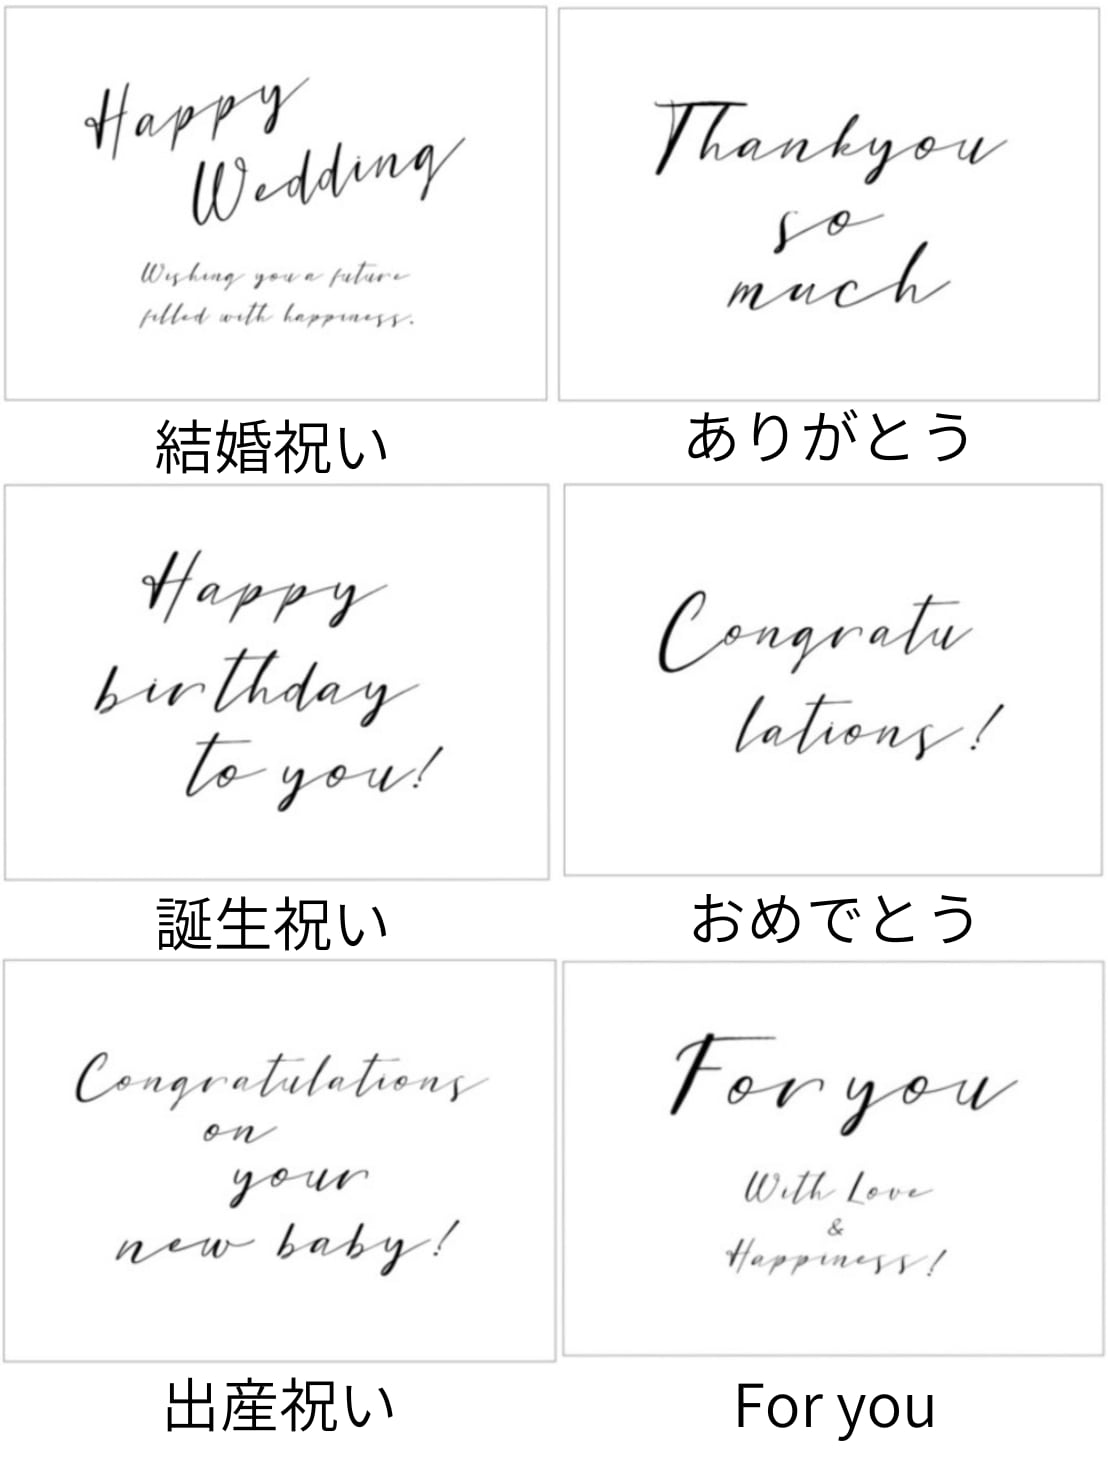 Happy
Wedding
Wishing you a future
filled with happiness.
結婚祝い
Thankyou
so
much
ありがとう
Happy
birthday
to you!
誕生祝い
Congratu
lations!
おめでとう
Congratulations
on
your
new baby!
出産祝い
For you
With Love
&
Happiness!
For you